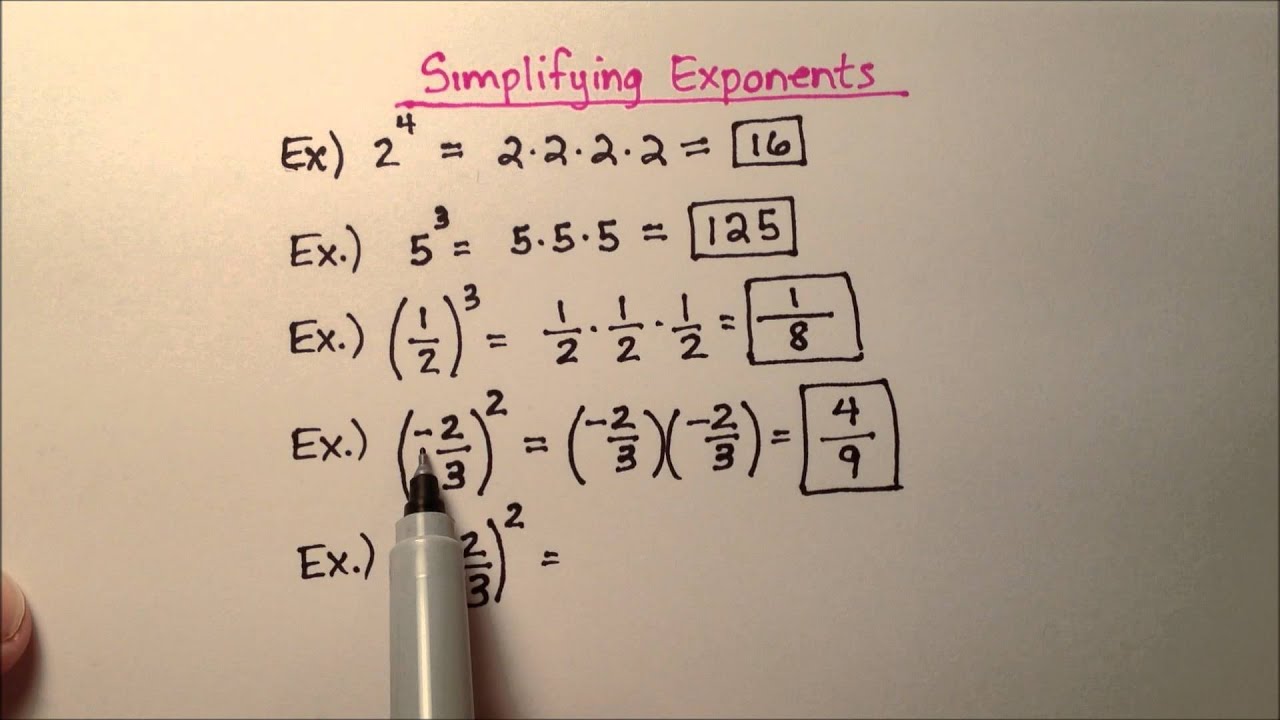 Simplifying Exponents
Ex) 2⁴ = 2·2·2·2 = 16
Ex.) 5³ = 5·5·5 = 125
Ex.) (1/2)³ = 1/2 · 1/2 · 1/2 = 1/8
Ex.) (-2/3)² = (-2/3)(-2/3) = 4/9
Ex.) 2/3)² =